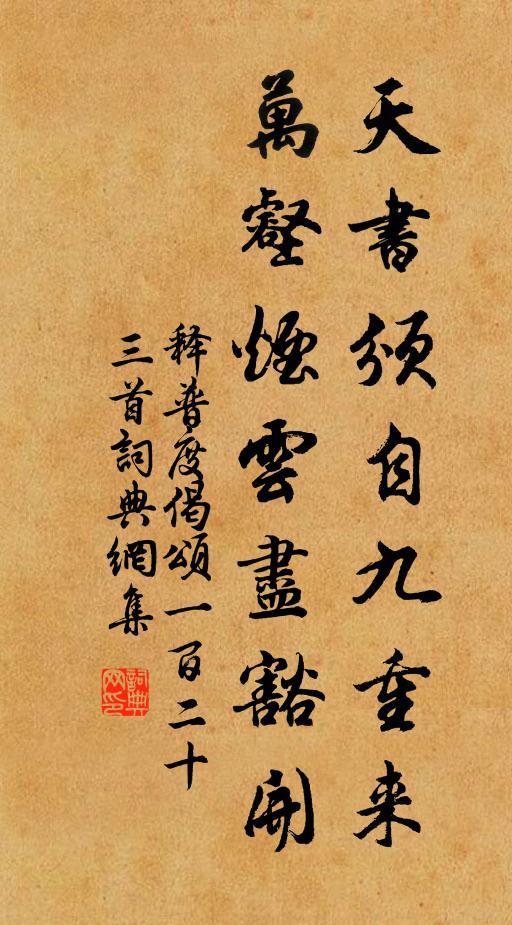 天書頒自九重来
萬壑煙雲盡豁開
释普度偈頌一百二十
三首詞典網集
詞典網印